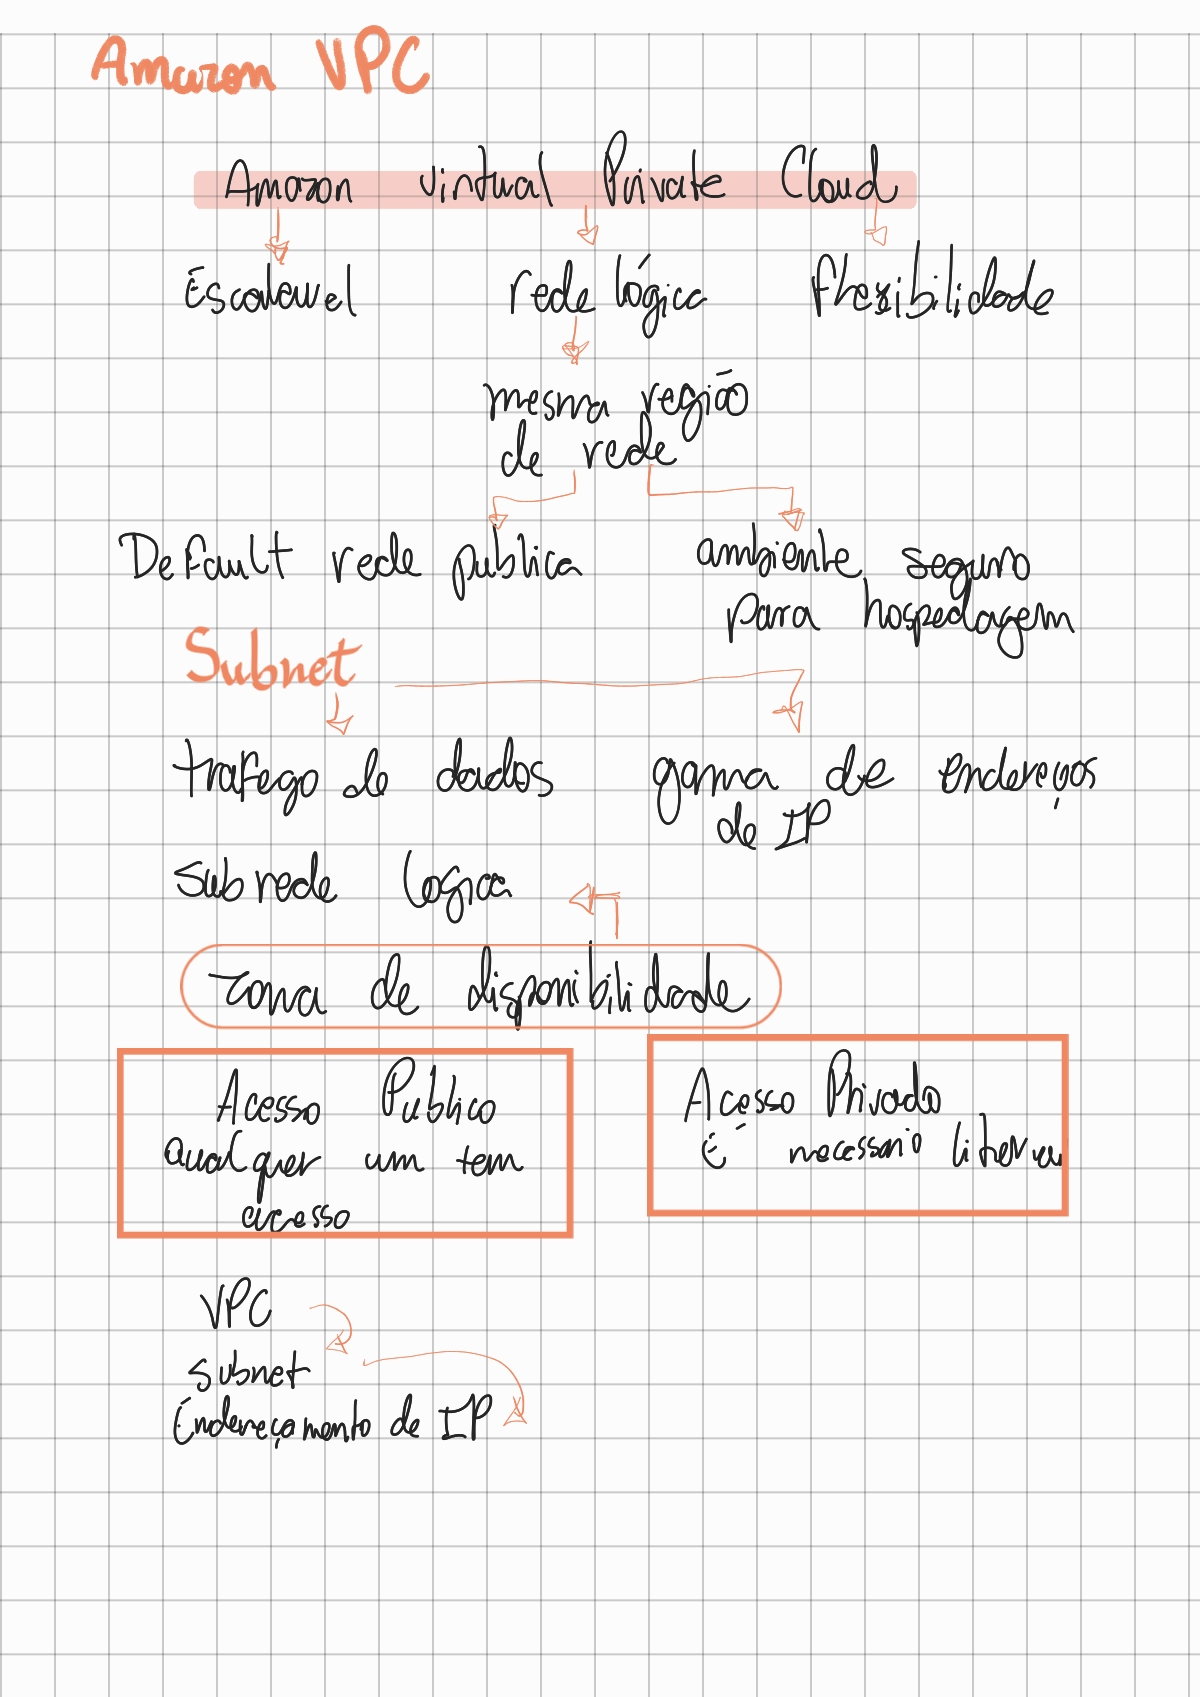 Amazon VPC
Amazon virtual Private Cloud
Escalavel rede lógica flexibilidade
mesma região
de rede
Default rede publica ambiente seguro
para hospedagem
Subnet
trafego de dados gama de endereços
de IP
Subrede logica
zona de disponibilidade
Acesso Publico
qualquer um tem
acesso
Acesso Privado
É necessario
VPC
subnet
Endereçamento de IP